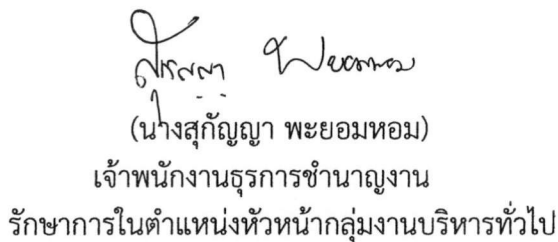 สุกัญญา พะยอมหอม
(นางสุกัญญา พะยอมหอม)
เจ้าพนักงานธุรการชำนาญงาน
รักษาการในตำแหน่งหัวหน้ากลุ่มงานบริหารทั่วไป